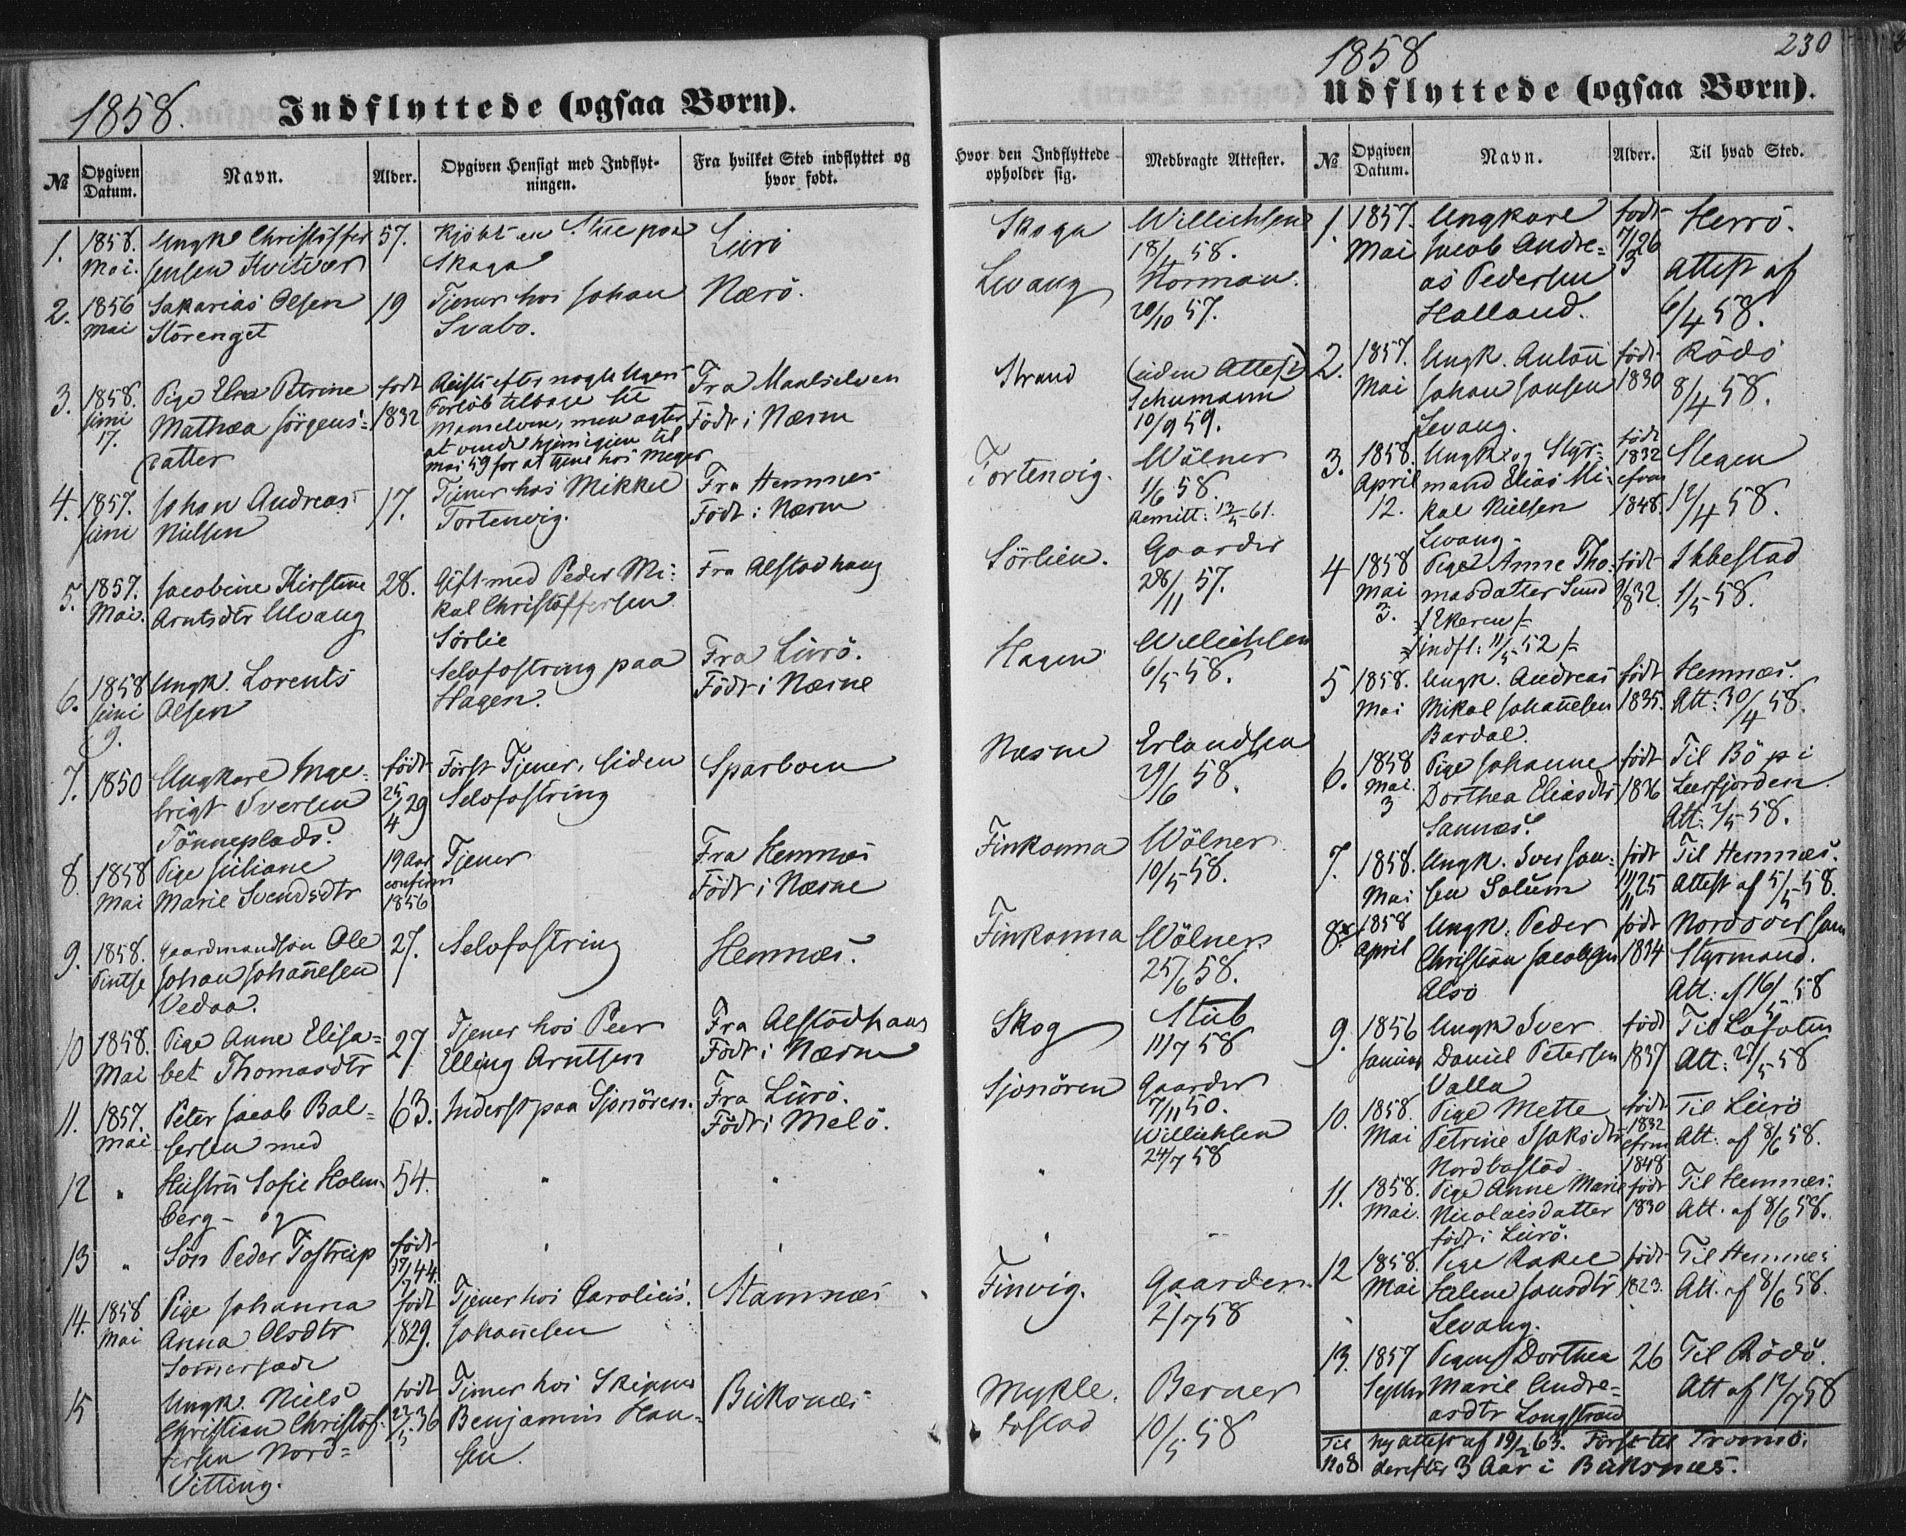 1858.
Indflyttede (ogsaa Børn).
№
Opgiven Datum.
Navn.
Alder.
Opgiven Hensigt med Indflyt-
ningen.
Fra hvilket Sted indflyttet og
hvor født.
Hvor den Indflyttede
opholder sig.
Medbragte Attester.
1. 1858. Ungk. Christoffer 57. Kjöbt en Stue paa Lurö Skaga Willichsen
Mai. Jensen Kvitvær Skaga 18/4 58.
2. 1856 Sakarias Olsen 19 Tjener hos Johan Nærö. Levang Norman.
Mai Störenget Svabo. 20/10 57.
3. 1858. Pige Elen Petrine født Reiste efter nogle Ugers Fra Maalselven Strand (uden Attest)
Juni Mathea Jörgens- 1832 Forløb tilbage til Født i Næsne Schumann
17. datter Maaselven, men agter 10/9 59.
at vende hjem igjen til
Mai 59 for at tjene hos Meyer
4. 1857. Johan Andreas 17. Tjener hos Mikkel Fra Hemnes Tortenvig. Wölner
Juni Nielsen Tortenvig. Født i Næsne 1/6 58.
Remitt: 13/5 61.
5. 1857. Jacobine Kirstine 28. Gift med Peder Mi- Fra Alstadhaug Sörlien. Gaarder
Mai. Arntsdtr Levang kal Christoffersen 28/11 57.
Sörlie
6. 1858 Ungk. Lorents Selvfostring paa Fra Lurö. Hagen Willichsen
Juni Olsen Hagen. Født i Næsne 6/5 58.
9.
7. 1850 Ungkarl Inge- født Först Tjener, siden Sparboen Næsne Erlandsen
brigt Iversen 25/4 29 Selvfostring 29/6 58.
Tönneplads.
8. 1858 Pige Juliane 19 Aar Tjener Fra Hemnes Finkonna Wölner
Mai Marie Svendsdtr confirm Født i Næsne 10/5 58.
1856
9. 1858. Gaardmandsön Ole 27. Selvfostring Hemnæs. Finkonna Wölner
Pintse Johan Johannesen 25/6 58.
Vedaa.
10 1858. Pige Anne Elisa- 27 Tjener hos Peer Fra Alstadhaug Skog Stub
Mai bet Thomasdtr Elling Arntsen Født i Næsne 11/7 58
11. 1857. Peter Jacob Bal- 63. Inderst paa Sjonören. Fra Lurö. Sjonören Gaarder
Mai sersen med Født i Melö. 7/11 50.
Willichsen
24/7 58
12 " Hustru Sofie Holm- 54. " " "
berg - og
13 " Sön Peder Tostrup født " " "
19/7 44.
14. 1858 Pige Johanna født Tjener hos Carolius Stamnæs Finvig. Gaarder
Mai Anna Olsdtr 1829. Johannesen 2/7 58
Somersæde
15 Ungk. Niels født Tjener hos Skipper Buksnæs Mykle- Berner
Christian Christof- 22/5 36 Benjamin Han- bostad 10/5 58
fersen Nord- sen
Vitting.
1858
230
Udflyttede (ogsaa Børn).
№
Opgiven Datum.
Navn.
Alder.
Til hvad Sted.
1. 1857. Ungkarl født Herrö.
Mai Jacob Andre- 7/3 26 Attest af
as Pedersen 6/4 58.
Halland.
2. 1857. Ungk. Anton født Rödö
Mai Johan Jonsen 1830 8/4 58.
Levang.
3. 1858. Ungk. og Styr- født 1832 Stegen
April mand Elias Mi- cfrm 12/4 58.
12. kal Nielsen 1848.
Levang.
4 1858 Pige Anne Tho- født Ibbestad
Mai masdatter Sund 1832. 1/5 58.
3. /:Ekeren:/
/:indfl: 11/5 52:/
5 1858. Ungk. Andreas født Hemnæs.
Mai Mikal Johannesen 1835. Att: 30/4 58.
Bardal.
6. 1858 Pige Johanne født Til Bö p i
Mai Dorthea Eliasdtr 1836 Leerfjorden
3 Sannæs. Att: 2/5 58.
7. 1858. Ungk. Iver Jon- født Til Hemnæs.
Mai sen Solum 11/11 25 Attest af 5/5 58.
8. 1858 Ungk. Peder født Nordover som
April Christian Jacobsen 1834 Styrmand.
Alsö Att: af 16/5 58
9. 1856 Ungk Iver født Til Lofoten
Januar Daniel Petersen 1837 Att: 27/5 58
Valla
10. 1858. Pige Mette født 1832 Til Lurö
Mai Petrine Isaksdtr cfrm Att: af 8/6 58.
Nordbostad 1848
11. 1858. Pige Anne Marie født Til Hemnæs.
Mai. Nicolaisdatter 1830 Att. af 8/6 58.
født i Lurö.
12 1858. Pige Rakel født Til Hemnæs
Mai Helene Jonsdtr 1823. Att. af 8/6 58.
Levang.
13. 1857 Pigen Dorthea 26 Til Rödö.
Septbr Marie Andre- Att af 12/7 58
asdtr Langstrand
Til Ny attest af 19/2 63. Först til Tromsö.
No 8 derefter 3 Aar i Buksnæs.